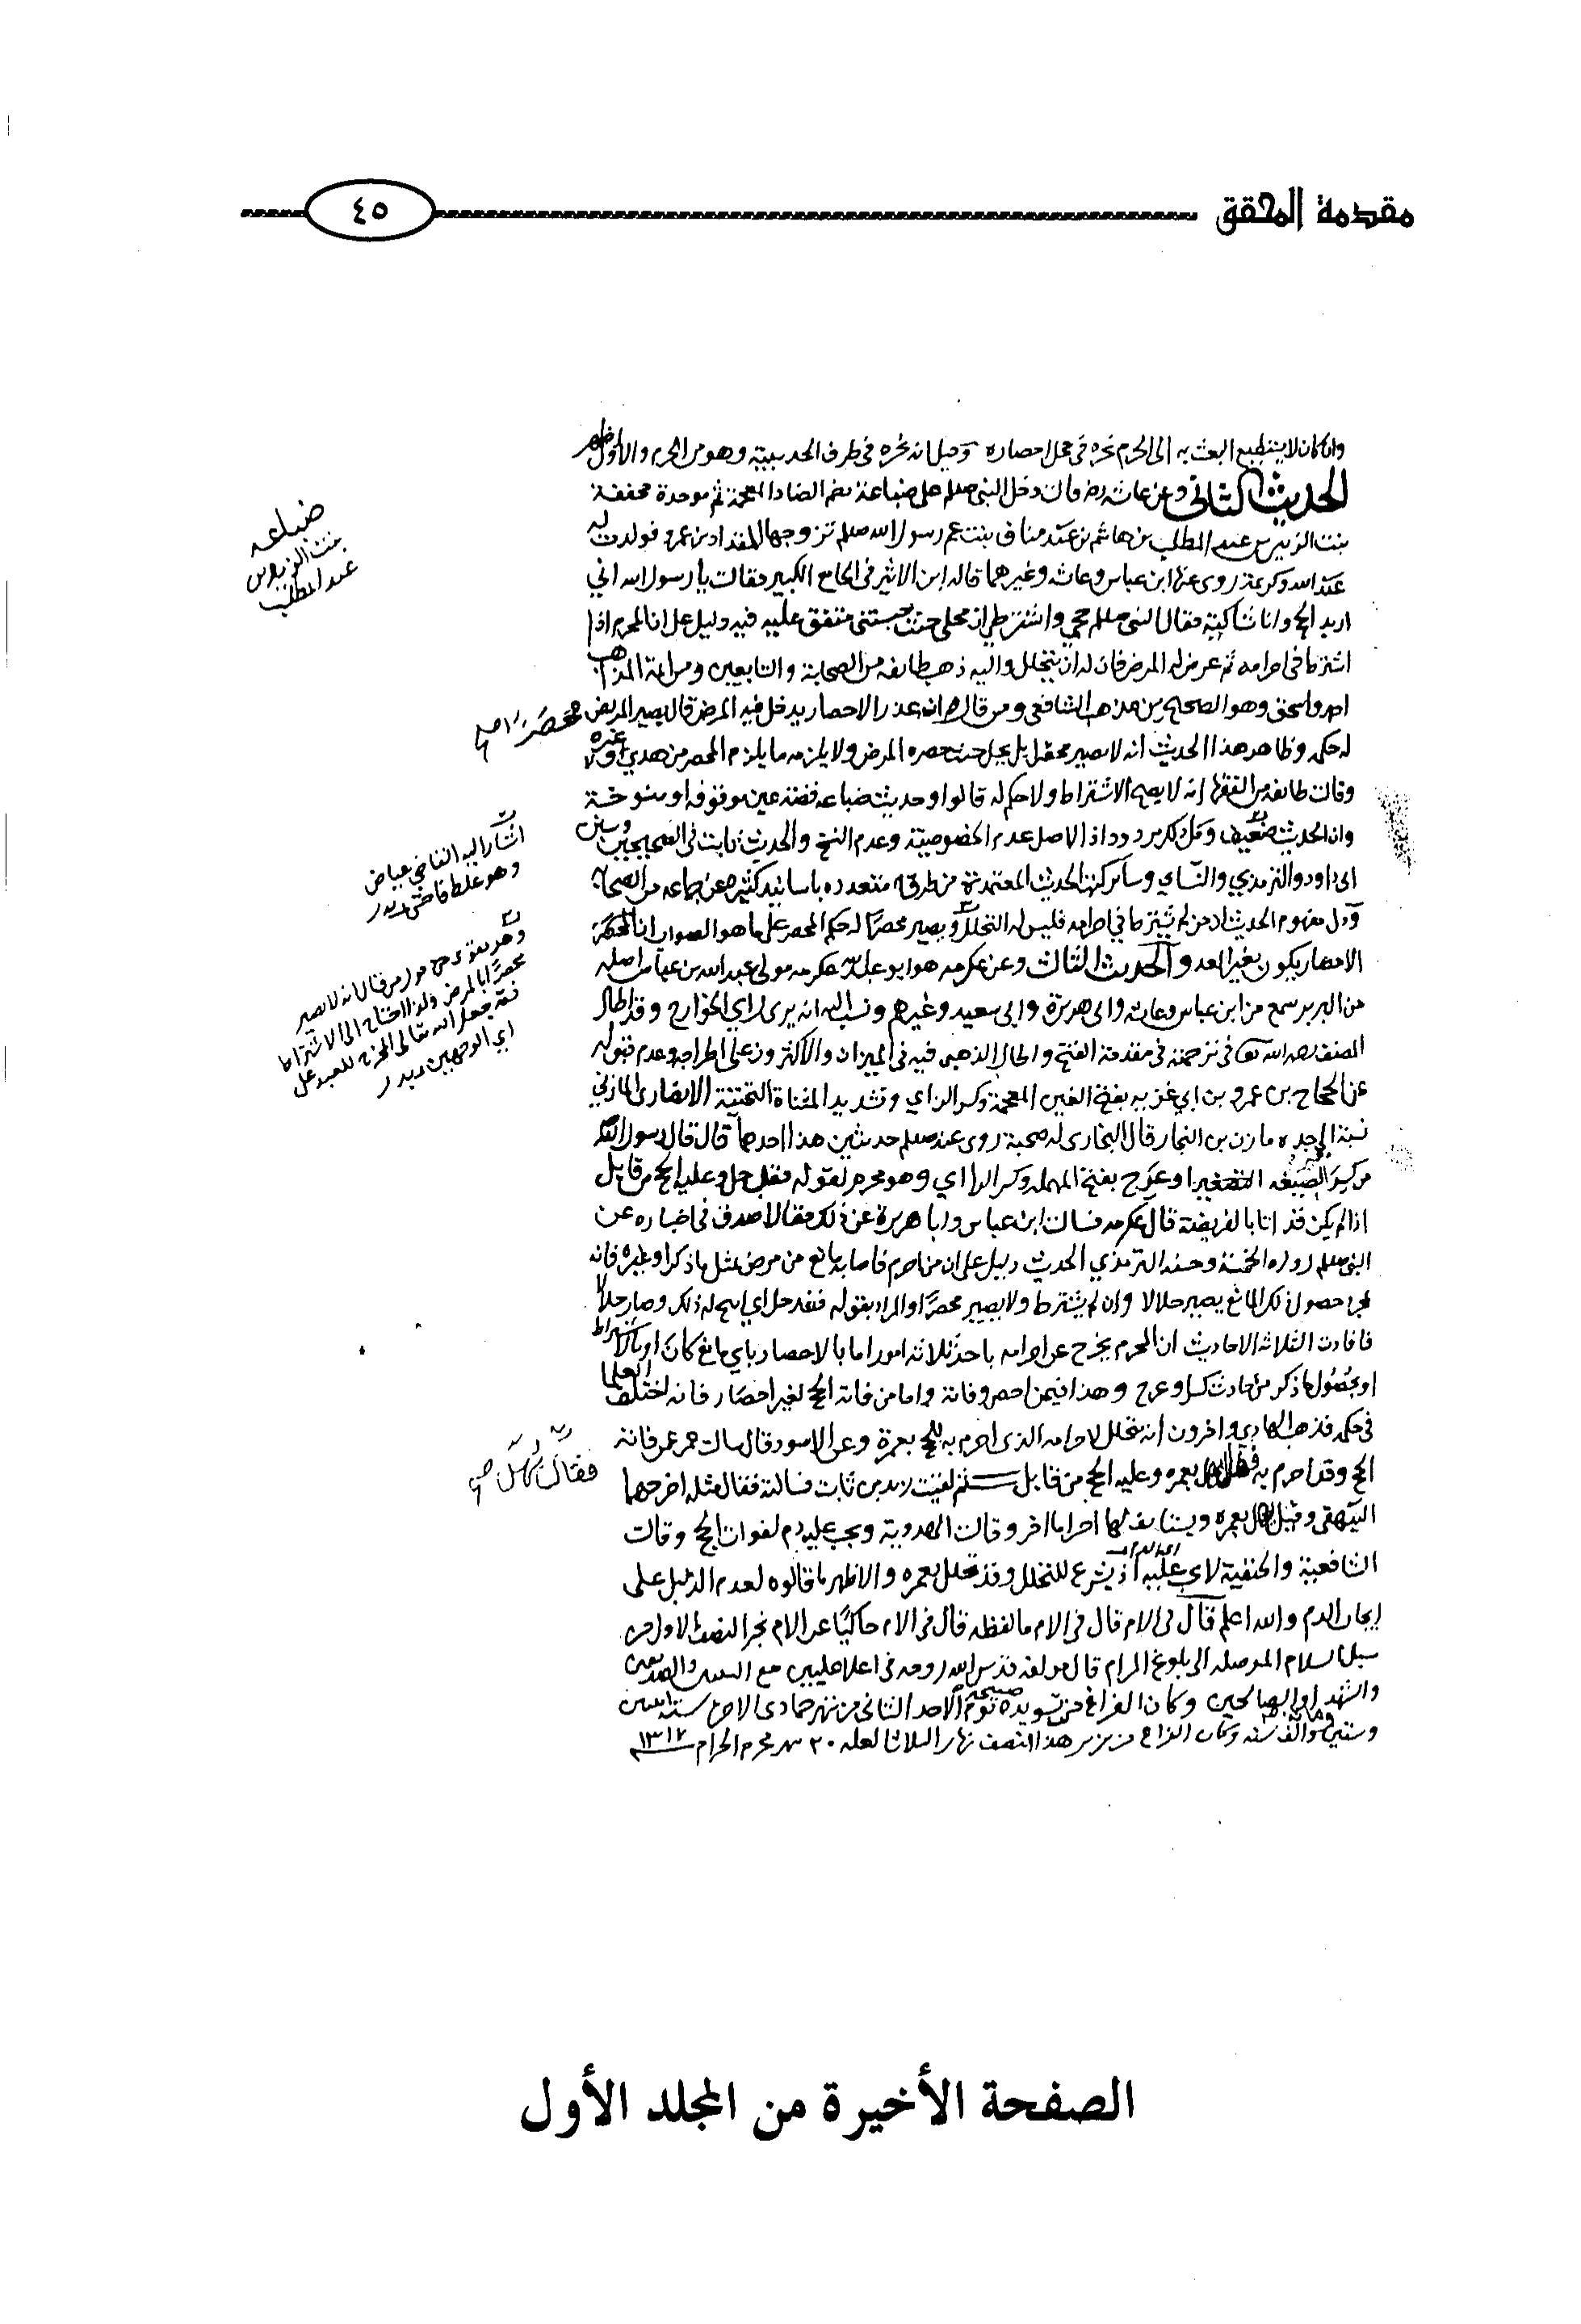 مقدمة المحقق
٤٥
وان كان لا يستطيع البعث به الى الحرم نحره في محل احصاره وقيل انه نحره في طرف الحديبية وهو من الحرم والاول اظهر
الحديث الثاني وعن عائشة رضـ قالت دخل النبي صلعم على ضباعة بضم الضاد المعجمة ثم موحدة مخففة
بنت الزبير بن عبد المطلب بن هاشم بن عبد مناف بنت عم رسول الله صلعم تزوجها المقداد بن عمرو فولدت له
عبد الله وكريمة روى عنها ابن عباس وعائشة وغيرهما قاله ابن الاثير في الجامع الكبير فقالت يا رسول الله اني
اريد الحج وانا شاكية فقال النبي صلعم حجي واشترطي ان محلي حيث حبستني متفق عليه فيه دليل على ان المحرم اذا
اشترط في احرامه ثم عرض له المرض فان له ان يتحلل واليه ذهب طائفه من الصحابة والتابعين ومن ائمة المذاهب
احمد واسحق وهو الصحيح من مذهب الشافعي ومن قال ان عذر الاحصار يدخل فيه المرض قال يصير المريض محصرا
له حكمه وظاهر هذا الحديث انه لا يصير محصرا بل يحل حيث حصره المرض ولا يلزمه ما يلزم المحصر من هدي ولا غيره
وقالت طائفه من الفقها انه لا يصح الاشتراط ولا حكم له قالوا وحديث ضباعه قصة عين موقوفه او منسوخة
وان الحديث ضعيف وكل ذلك مردود اذ الاصل عدم الخصوصية وعدم النسخ والحديث ثابت في الصحيحين وسنن
ابي داود والترمذي والنساي وسائر كتب الحديث المعتمدة من طرق متعدده باسانيد كثيره عن جماعه من الصحابة
ودل مفهوم الحديث ان من لم يشترط في احرامه فليس له التحلل ويصير محصرا له حكم المحصر على ما هو الصواب ان
الاحصار يكون بغير العدو الحديث الثالث وعن عكرمه هو ابو عبد الله عكرمه مولى عبد الله بن عباس اصله
من البربر سمع من ابن عباس وعائشه وابي هريرة وابي سعيد وغيرهم ونسب اليه انه يرى راي الخوارج وقد اطال
المصنف رحمه الله في ترجمته في مقدمة الفتح واطال الذهبي فيه في الميزان والاكثرون على اطراحه وعدم قبوله
عن الحجاج بن عمرو بن ابي غزيه بفتح الغين المعجمة وكسر الزاي وتشديد المثناة التحتية الانصاري المازني
نسبة الى جده مازن بن النجار قال البخاري له صحبة روى عنه صلعم حديثين هذا احدهما قال قال رسول الله
من كسر او عرج بفتح المهمله وكسر الراء اي وهو محرم لقوله فقد حل وعليه الحج من قابل
اذا لم يكن قد اتا بالفريضة قال عكرمه فسالت ابن عباس وابا هريرة عن ذلك فقالا صدق في اخباره عن
النبي صلعم رواه الخمسة وحسنه الترمذي الحديث دليل على ان من احرم فاصابه مانع من مرض مثل ما ذكر او غيره فانه
بمجرد حصول ذلك المانع يصير حلالا وان لم يشترط ولا يصير محصرا والمراد بقوله فقد حل اي ابيح له ذلك وصار حلالا
فافادت الثلاثة الاحاديث ان المحرم يخرج عن احرامه باحد ثلاثه امور اما بالاحصار باي مانع كان او بالاشتراط
او بحصول ما ذكر من حادث كسر او عرج وهذا فيمن احصر وفاته واما من فاته الحج لغير احصار فانه اختلف العلما
في حكمه فذهب الهادي واخرون انه يتحلل لاحرامه الذي احرم به للحج بعمرة وعن الاسود قال سالت عمر عمن فاته
الحج وقد احرم به فقال يهل بعمره وعليه الحج من قابل ثم لقيت زيد بن ثابت فسالته فقال مثله اخرجهما
البيهقي وقيل يهل بعمره ويستانف لها احراما اخر وقالت الهدوية ويجب عليه دم لفوات الحج وقالت
الشافعية والحنفية لا يجب عليه اذ يشرع للتحلل وقد تحلل بعمره والاظهر ما قالوه لعدم الدليل على
ايجاب الدم والله اعلم قال في الام قال في الام ما لفظه قال في الام حاكيا عن الام نجز النصف الاول من
سبل السلام الموصله الى بلوغ المرام قال مولفه قدس الله روحه في اعلا عليين مع النبيين والصديقين
والشهداء والصالحين وكان الفراغ من تسويده صبيحة يوم الاحد الثاني من شهر جمادى الاخرة سنة اثنتين
وستين ومائة والف سنه وكان الفراغ من زبر هذا النصف نهار الثلاثا لعله ٢٠ شهر محرم الحرام ١٣١٢
ضباعه
بنت الزبير بن
عبد المطلب
محصرا صح
اشار اليه القاضي عياض
وهو غلط فاحش
من قال انه لا يصير
محصرا بالمرض ولذا احتاج الى الاشتراط
اي الوجهين
فقال يهل صح
الصفحة الأخيرة من المجلد الأول